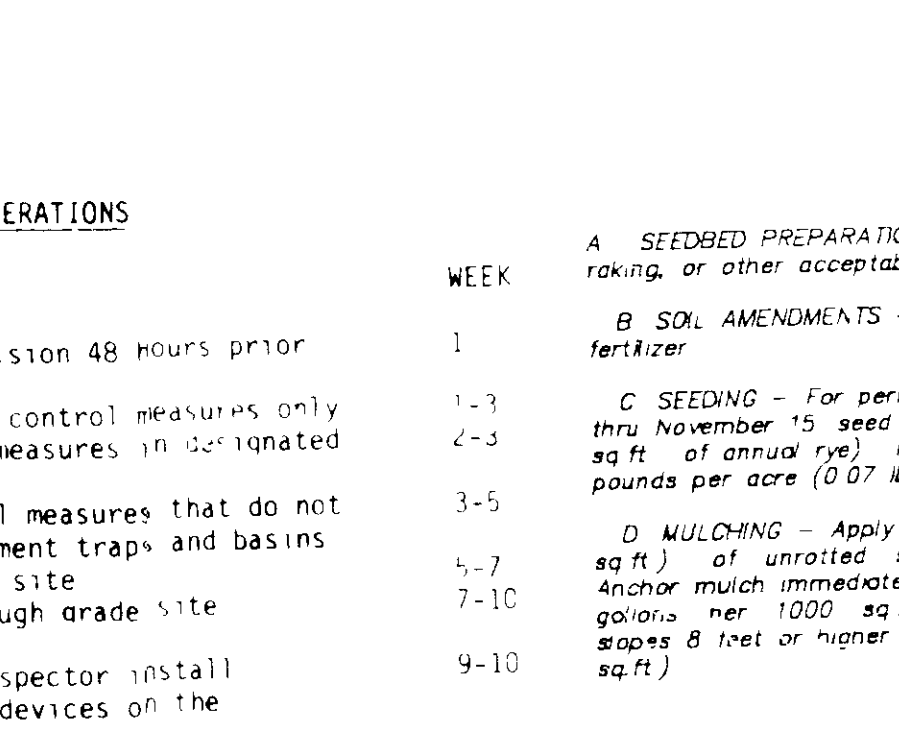 ERATIONS
WEEK
sion 48 Hours prior 1
control measures only 1-3
measures in designated 2-3
l measures that do not 3-5
ment traps and basins
site 5-7
ugh grade site 7-10
spector install 9-10
devices on the
A SEEDBED PREPARATIO
raking, or other acceptab
B SOIL AMENDMENTS -
fertilizer
C SEEDING - For per
thru November 15 seed
sq ft of annual rye)
pounds per acre (0 07 lb
D MULCHING - Apply
sq ft) of unrotted s
Anchor mulch immediate
gallons per 1000 sq
slopes 8 feet or higher
sq.ft)